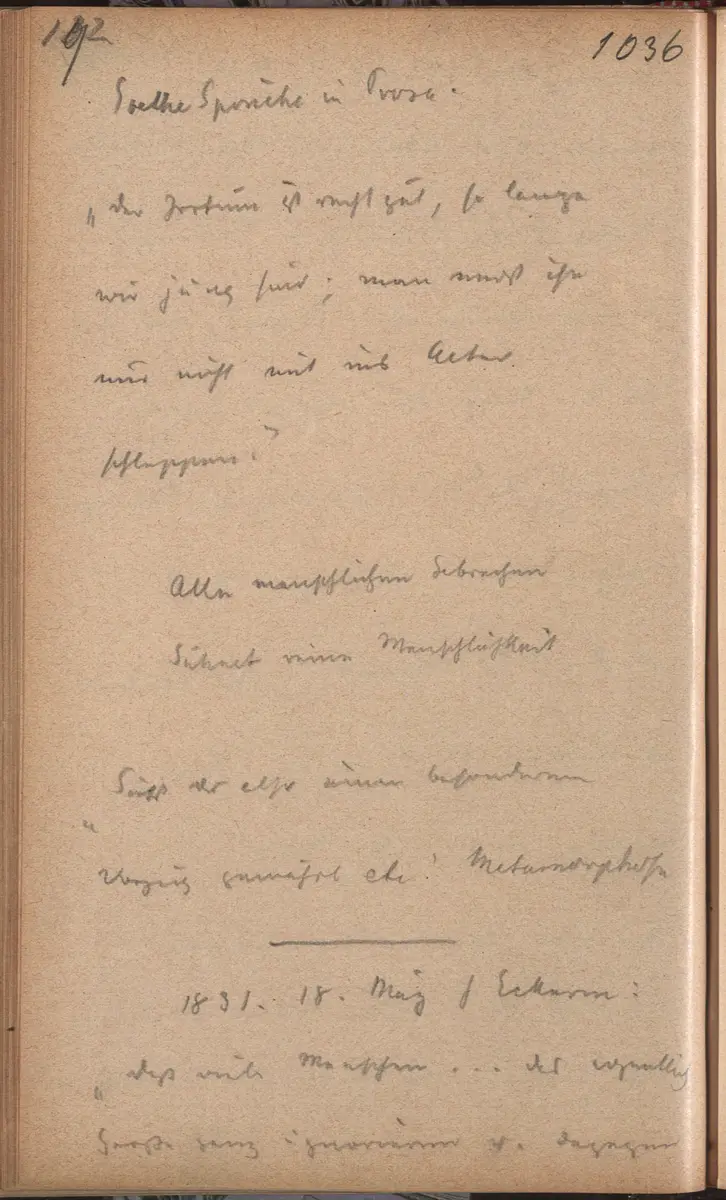 1036
Goethe Sprüche in Prosa.
„der Irrtum ist recht gut, so lange
wir jung sind; man muß ihn
nur nicht mit ins Alter
schleppen.“
Alle menschlichen Gebrechen
Sühnet reine Menschlichkeit
du also einem besonderen
„
Vorzug gewährt etc! Metamorphose
1831. 18. März / Eckerm:
„daß viele Menschen ... das eigentlich
Große ganz ignorieren u. dagegen